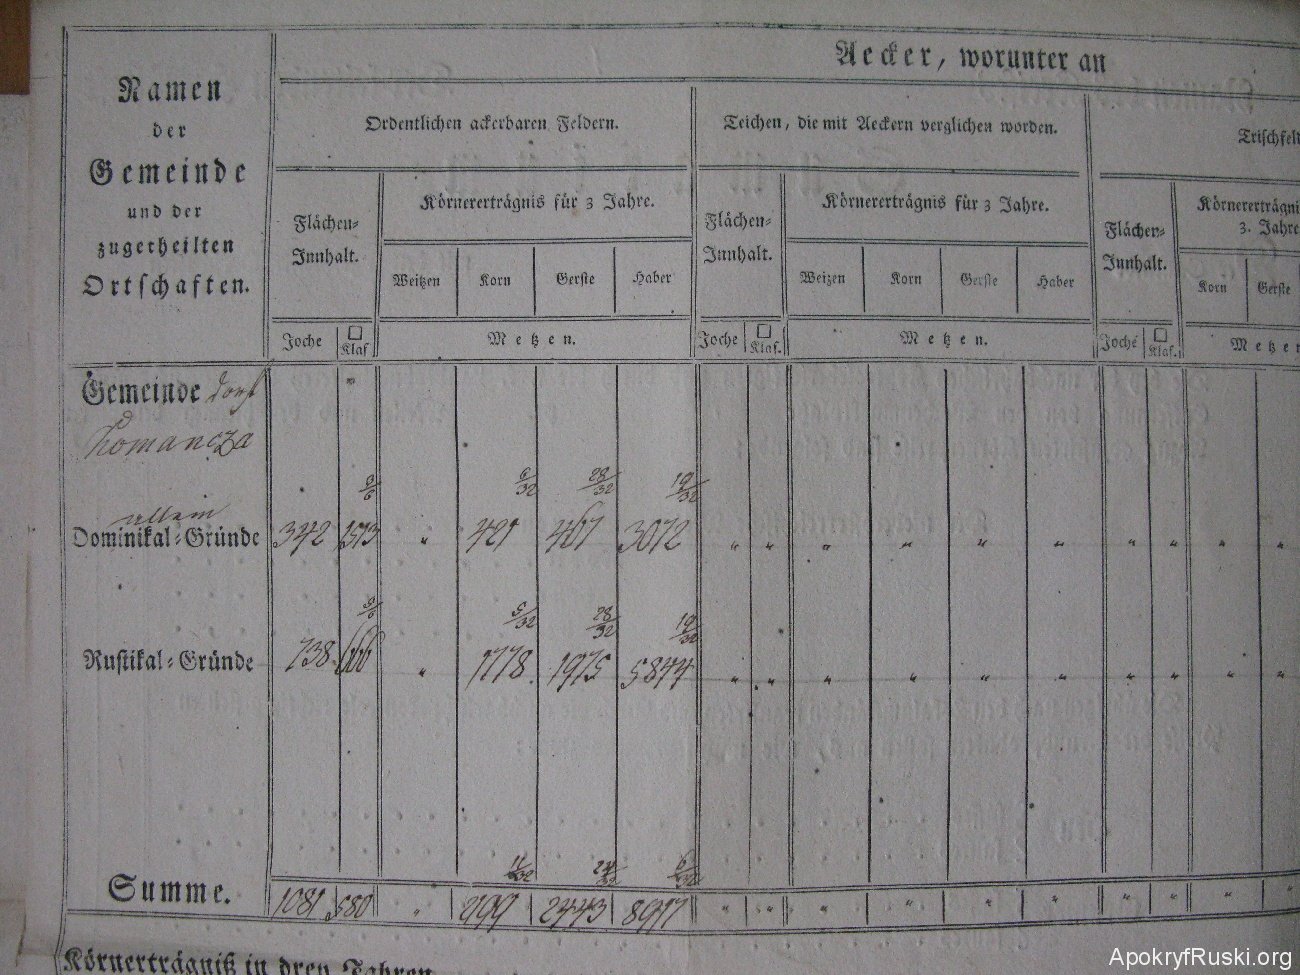 Aecker, worunter an
Namen
der
Gemeinde
und der
zugetheilten
Ortschaften.
Ordentlichen ackerbaren Feldern.
Teichen, die mit Aeckern verglichen worden.
Trischfeld
Flächen-
Innhalt.
Körnererträgnis für 3 Jahre.
Flächen-
Innhalt.
Körnererträgnis für 3 Jahre.
Flächen-
Innhalt.
Körnererträgni
3. Jahre
Weitzen Korn Gerste Haber
Weizen Korn Gerste Haber
Korn Gerste
Joche □ Klaf
Metzen.
Joche □ Klaf.
Metzen.
Joche □ Klaf.
Metzen
Gemeinde Dorf
Komancza
allein
6/32 28/32 19/32
Dominikal-Gründe 342 1513 " 421 467 3072 " " " " " " " " " "
5/32 28/32 19/32
Rustikal-Gründe 738 666 " 1778 1975 5844 " " " " " " " " " "
11/32 24/32 6/32
Summe. 1081 580 " 2199 2443 8917 " " " " " " " " " "
Körnerträgniß in drey Jahren
ApokryfRuski.org